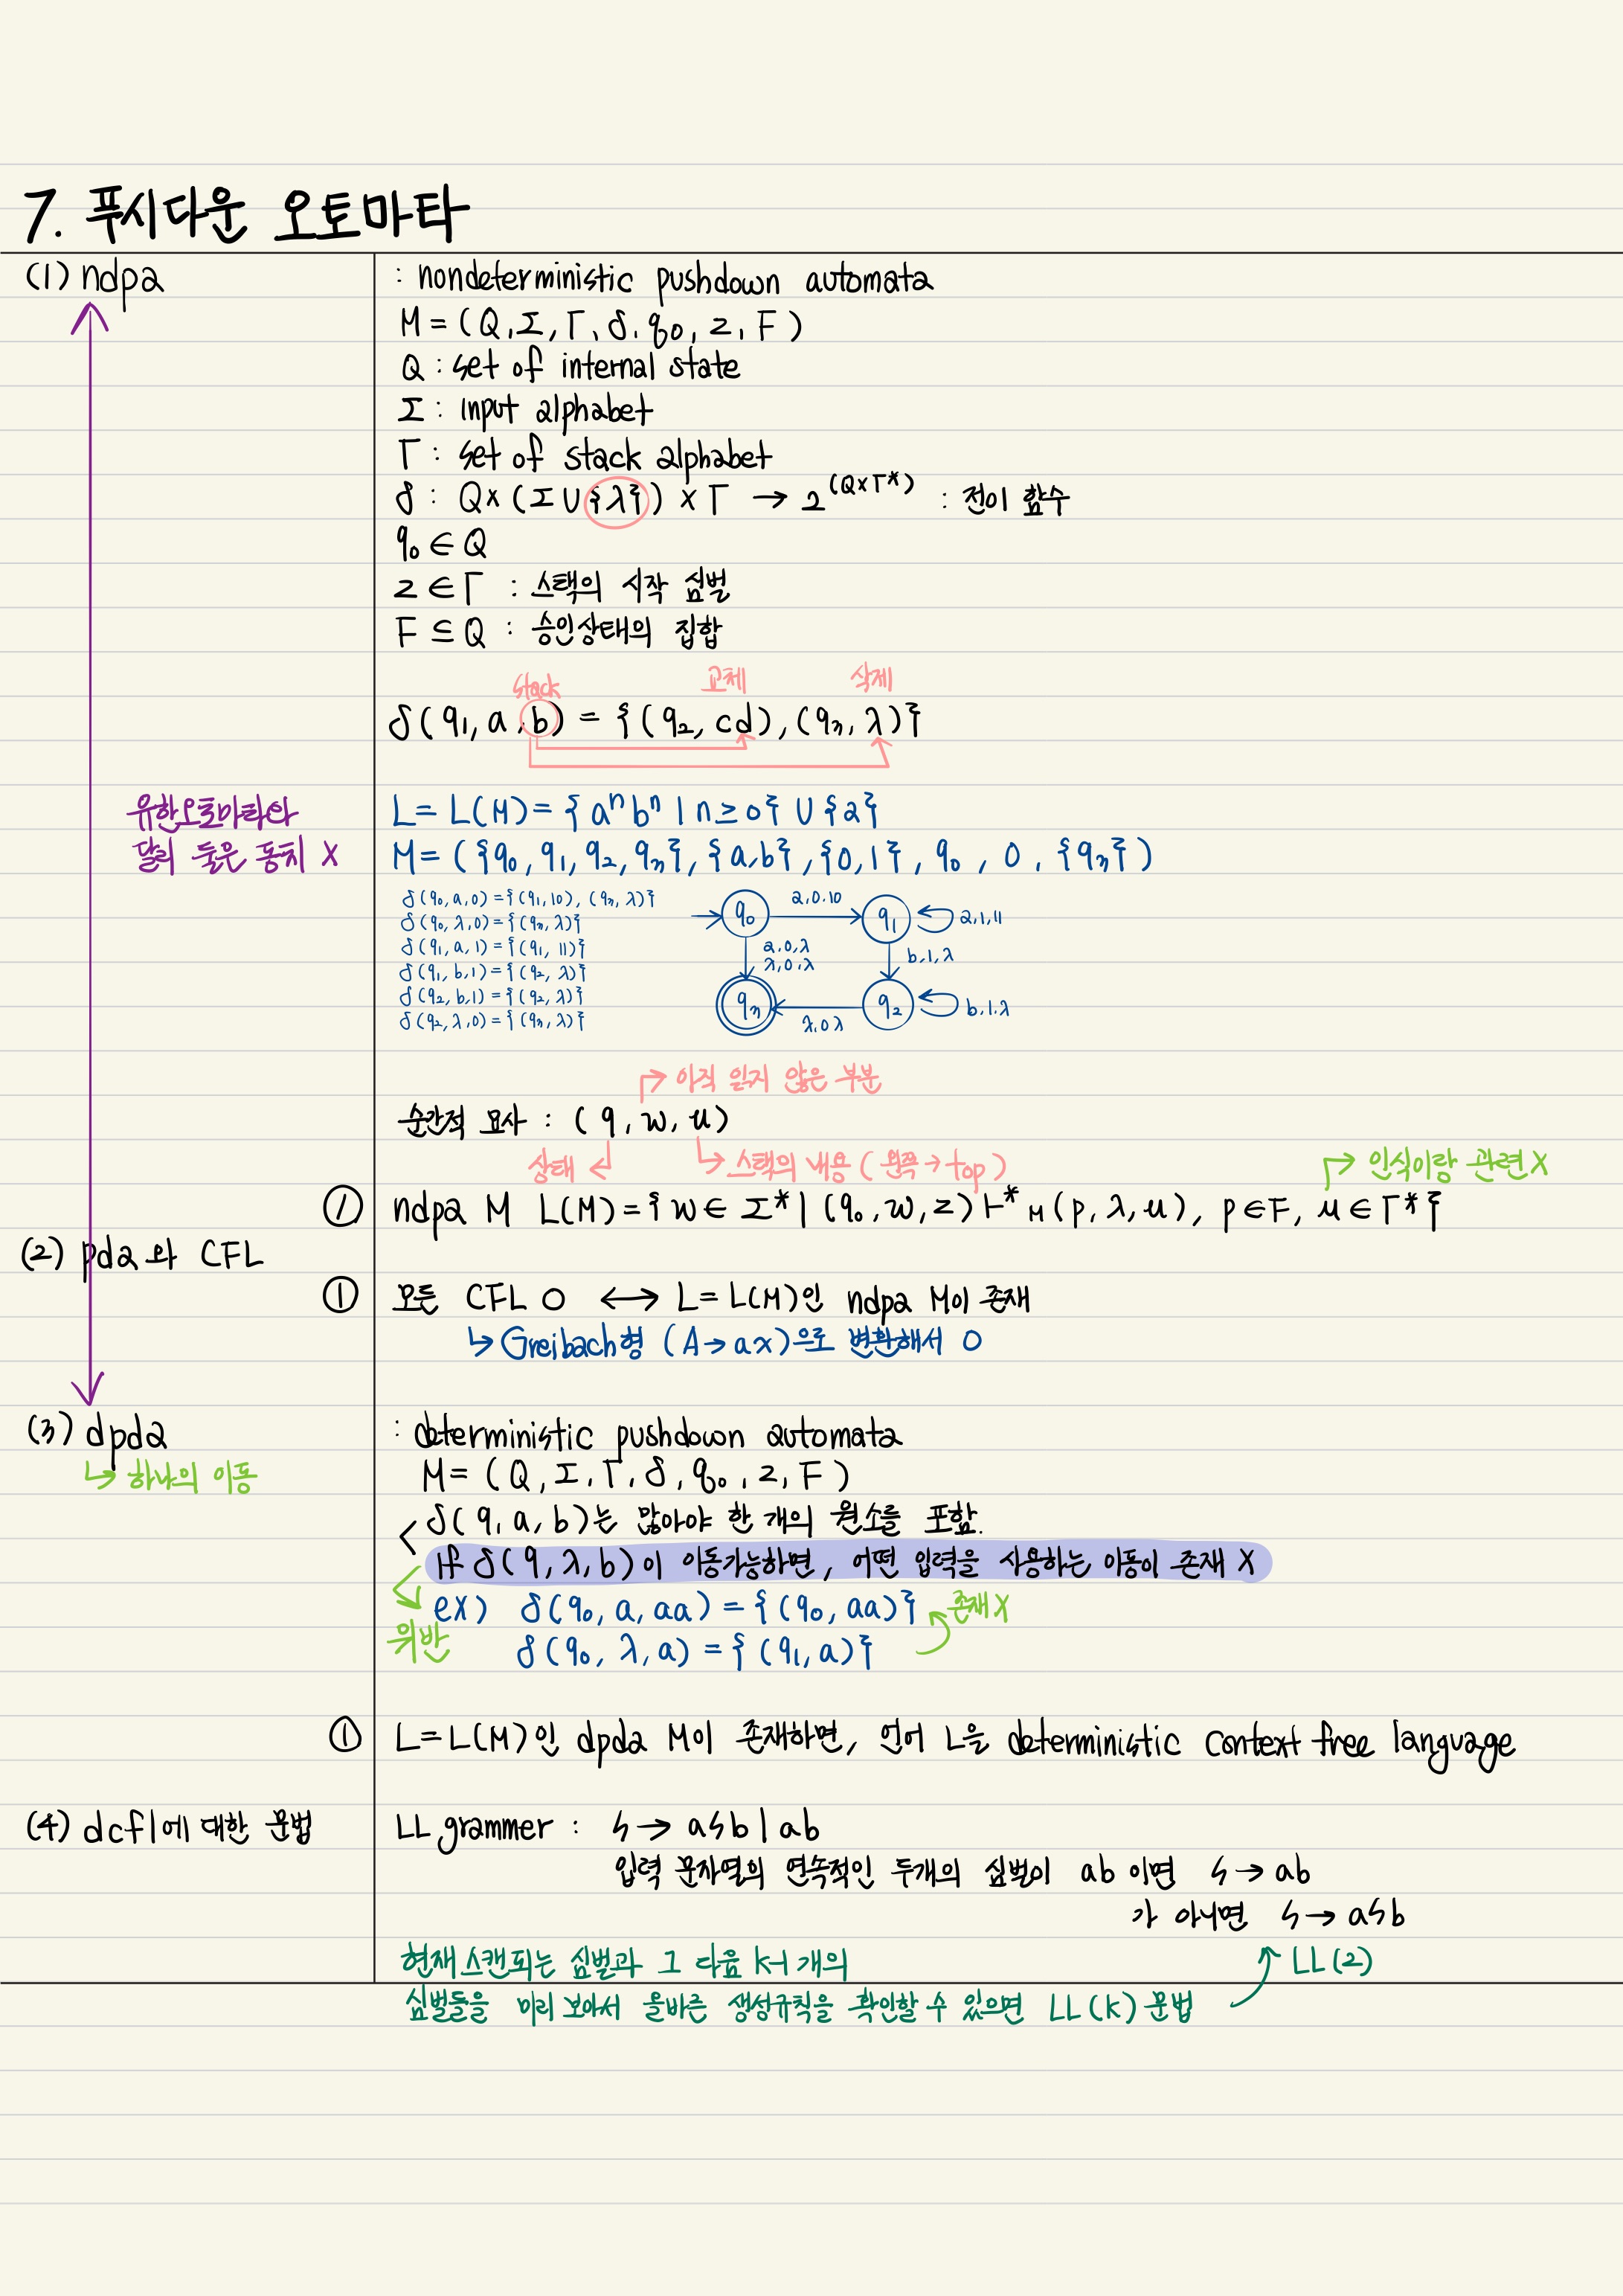 7. 푸시다운 오토마타
(1) ndpa
: nondeterministic pushdown automata
M = (Q, Σ, Γ, δ, q₀, z, F)
Q : set of internal state
Σ : input alphabet
Γ : set of stack alphabet
δ : Q×(Σ∪{λ})×Γ → 2^(Q×Γ*) : 전이 함수
q₀ ∈ Q
z ∈ Γ : 스택의 시작 심벌
F ⊆ Q : 승인상태의 집합
stack 교체 삭제
δ(q₁, a, b) = {(q₂, cd), (q₃, λ)}
유한오토마타와
달리 둘은 동치 X
L = L(M) = {aⁿbⁿ | n ≥ 0} ∪ {a}
M = ({q₀, q₁, q₂, q₃}, {a,b}, {0,1}, q₀, 0, {q₃})
δ(q₀, a, 0) = {(q₁, 10), (q₃, λ)}
δ(q₀, λ, 0) = {(q₃, λ)}
δ(q₁, a, 1) = {(q₁, 11)}
δ(q₁, b, 1) = {(q₂, λ)}
δ(q₂, b, 1) = {(q₂, λ)}
δ(q₂, λ, 0) = {(q₃, λ)}
q₀ a,0,10 q₁ a,1,11
a,0,λ
λ,0,λ
b,1,λ
q₃ λ,0,λ q₂ b,1,λ
→ 아직 읽지 않은 부분
순간적 묘사 : (q, w, u)
상태 ← → 스택의 내용 (왼쪽→top)
→ 인식이랑 관련 X
① ndpa M L(M) = {w ∈ Σ* | (q₀, w, z) ⊢*M (p, λ, u), p ∈ F, u ∈ Γ*}
(2) pda와 CFL
① 모든 CFL O ↔ L = L(M)인 ndpa M이 존재
↳ Greibach형 (A → ax)으로 변환해서 O
(3) dpda
↳ 하나의 이동
: deterministic pushdown automata
M = (Q, Σ, Γ, δ, q₀, z, F)
δ(q, a, b)는 많아야 한 개의 원소를 포함.
if δ(q, λ, b)이 이동가능하면, 어떤 입력을 사용하는 이동이 존재 X
위반
ex) δ(q₀, a, aa) = {(q₀, aa)} 존재X
δ(q₀, λ, a) = {(q₁, a)}
① L = L(M)인 dpda M이 존재하면, 언어 L을 deterministic context free language
(4) dcfl에 대한 문법
LL grammer : S → aSb | ab
입력 문자열의 연속적인 두개의 심벌이 ab 이면 S → ab
가 아니면 S → aSb
LL(2)
현재 스캔되는 심벌과 그 다음 k-1 개의
심벌들을 미리 보아서 올바른 생성규칙을 확인할 수 있으면 LL(k) 문법